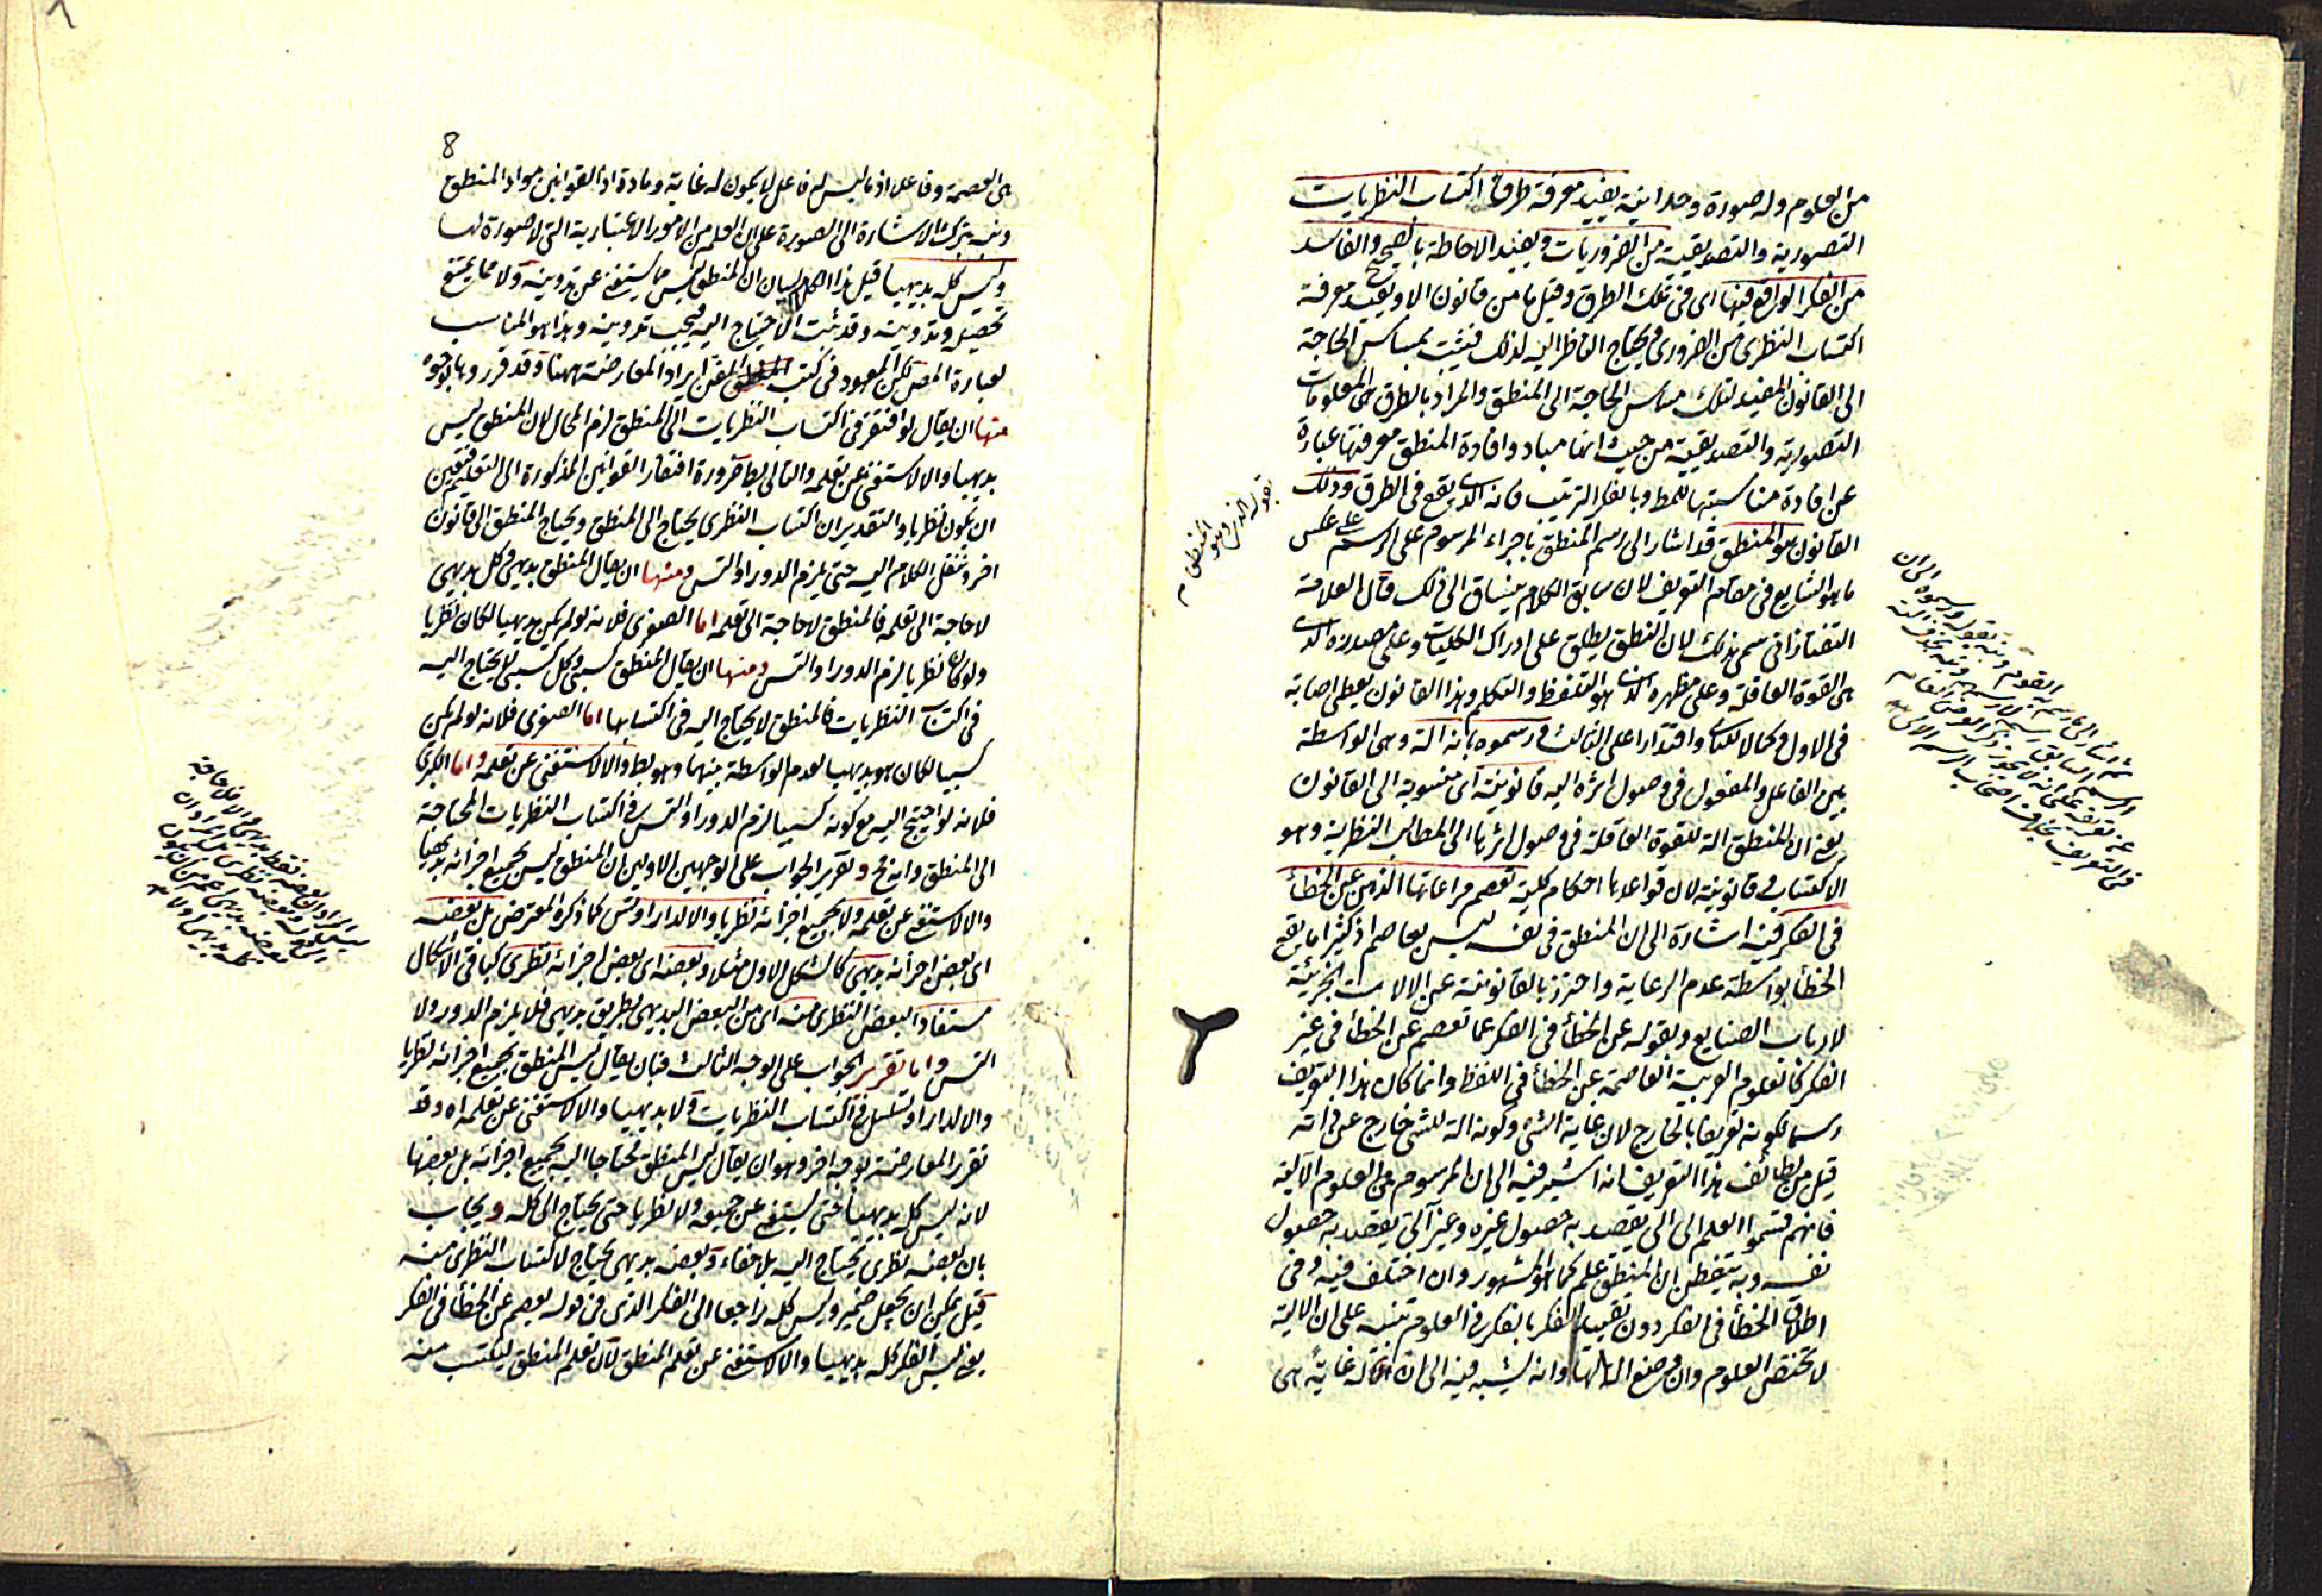 من العلوم وله صورة وحدانية يفيد معرفة طرق اكتساب النظريات
التصورية والتصديقية من الضروريات ويفيد الاحاطة بالصحيح والفاسد
من الفكر الواقع فيها اى فى تلك الطرق وقيل ما من قانون الا ويفيد معرفة
اكتساب النظرى من الضرورى ويحتاج الناظر اليه لذلك فيثبت بمساس الحاجة
الى القانون المفيد لتلك مساس الحاجة الى المنطق والمراد بالطرق هى المعلومات
التصورية والتصديقية من حيث انها مباد وافادة المنطق معرفتها عبارة
عن افادة مناسبتها للمط وبالفكر الترتيب فانه الذى يقع فى الطرق وذلك
القانون هو المنطق قد اشار الى رسم المنطق باجراء المرسوم على الرسم على عكس
ما هو الشايع فى مقام التعريف لان سابق الكلام ينساق الى ذلك قال العلامة
التفتازانى سمى بذلك لان النطق يطلق على ادراك الكليات وعلى مصدره الذى
هى القوة العاقلة وعلى مظهره الذى هو التلفظ والتكلم وهذا القانون يعطى اصابة
فى الاول وكمالا للثانى واقتدارا على الثالث ورسموه بانه الة وهى الواسطة
بين الفاعل والمنفعل فى وصول اثره اليه قانونية اى منسوبة الى القانون
يعنى ان المنطق الة للقوة العاقلة فى وصول اثرها الى المطالب النظرية وهو
الاكتساب وقانونية لان قواعدها احكام كلية تعصم مراعاتها الذهن عن الخطأ
فى الفكر فيه اشارة الى ان المنطق فى نفسه ليس بعاصم اذ كثيرا ما يقع
الخطأ بواسطة عدم الرعاية واحترز بالقانونية عن الالات الجزئية
لارباب الصنايع وبقوله عن الخطأ فى الفكر عما تعصم عن الخطأ فى غير
الفكر كالعلوم العربية العاصمة عن الخطأ فى اللفظ وانما كان هذا التعريف
رسما لكونه تعريفا بالخارج لان غاية الشئ وكونه الة للشئ خارج عن ذاته
قيل من لطائف هذا التعريف انه اشير فيه الى ان المرسوم من العلوم الآلية
فانهم قسموا العلم الى الى يقصد به حصول غيره وغير آلى يقصد به حصول
نفسه وبه يتفطن ان المنطق علم كما هو المشهور وان اختلف فيه وفى
اطلاق الخطأ فى الفكر دون تقييد الفكر بالفكر فى العلوم تنبيه على ان الالية
لا تختص العلوم وانه يشير فيه الى ان له غاية هى
بقوله الذى هو
المنطق
هى العصمة وفاعلا اذ ما ليس له فاعل لا يكون له غاية ومادة اذ القوانين مواد المنطق
ونبه بترك الاشارة الى الصورة على ان العلم من الامور الاعتبارية التى لا صورة لها
وليس كله بديهيا قيل هذا الكلام لبيان ان المنطق ليس مما يستغنى عن تدوينه ولا مما يمتنع
تحصيله وتدوينه وقد ثبت الاحتياج اليه فيجب تدوينه وهذا هو المناسب
لعبارة المص لكن المعهود فى كتب الفن ايراد المعارضة ههنا وقد قرروها بوجوه
منها ان يقال لو افتقر فى اكتساب النظريات الى المنطق لزم المحال لان المنطق ليس
بديهيا والا لاستغنى عن تعلمه والتالى بط ضرورة افتقار القوانين المذكورة الى التعليم فتعين
ان يكون نظريا والتقدير ان اكتساب النظرى يحتاج الى المنطق ويحتاج المنطق الى قانون
اخر وننقل الكلام اليه حتى يلزم الدور او التس ومنها ان يقال المنطق بديهى وكل بديهى
لا حاجة الى تعلمه فالمنطق لا حاجة الى تعلمه اما الصغرى فلانه لو لم يكن بديهيا لكان نظريا
ولو كان نظريا لزم الدور او التس ومنها ان يقال المنطق كسبى وكل كسبى لا يحتاج اليه
فى اكتساب النظريات فالمنطق لا يحتاج اليه فى اكتسابها اما الصغرى فلانه لو لم يكن
كسبيا لكان هو بديهيا لعدم الواسطة بينهما وهو بط والا لاستغنى عن تعلمه واما الكبرى
فلانه لو احتيج اليه مع كونه كسبيا لزم الدور او التس فى اكتساب النظريات المحتاجة
الى المنطق وانه مح وتقرير الجواب على الوجهين الاولين ان المنطق ليس بجميع اجزائه بديهيا
والا لاستغنى عن تعلمه ولا بجميع اجزائه نظريا والا لدار او تس كما ذكره المعترض بل بعضه
اى بعض اجزائه بديهى كالشكل الاول مثلا وبعضه اى بعض اجزائه نظرى كباقى الاشكال
مستفاد البعض النظرى منه اى من البعض البديهى بطريق بديهى فلا يلزم الدور ولا
التس واما تقرير الجواب على الوجه الثالث فبان يقال ليس المنطق بجميع اجزائه نظريا
والا لدار او تسلسل فى اكتساب النظريات ولا بديهيا والا لاستغنى عن تعلمه اه وقد
تقرر المعارضة بوجه اخر وهو ان يقال ليس المنطق محتاجا اليه بجميع اجزائه بل بعضها
لانه ليس كله بديهيا حتى يستغنى عن جميعه ولا نظريا حتى يحتاج الى كله ويجاب
بان بعضه نظرى يحتاج اليه بلا خفاء وبعضه بديهى يحتاج لاكتساب النظرى منه
قيل يمكن ان يجعل ضمير وليس كله راجعا الى الفكر الذى فى قوله يعصم عن الخطأ فى الفكر
يعنى ليس الفكر كله بديهيا والا لاستغنى عن تعلم المنطق لان تعلم المنطق ليكتسب منه
8